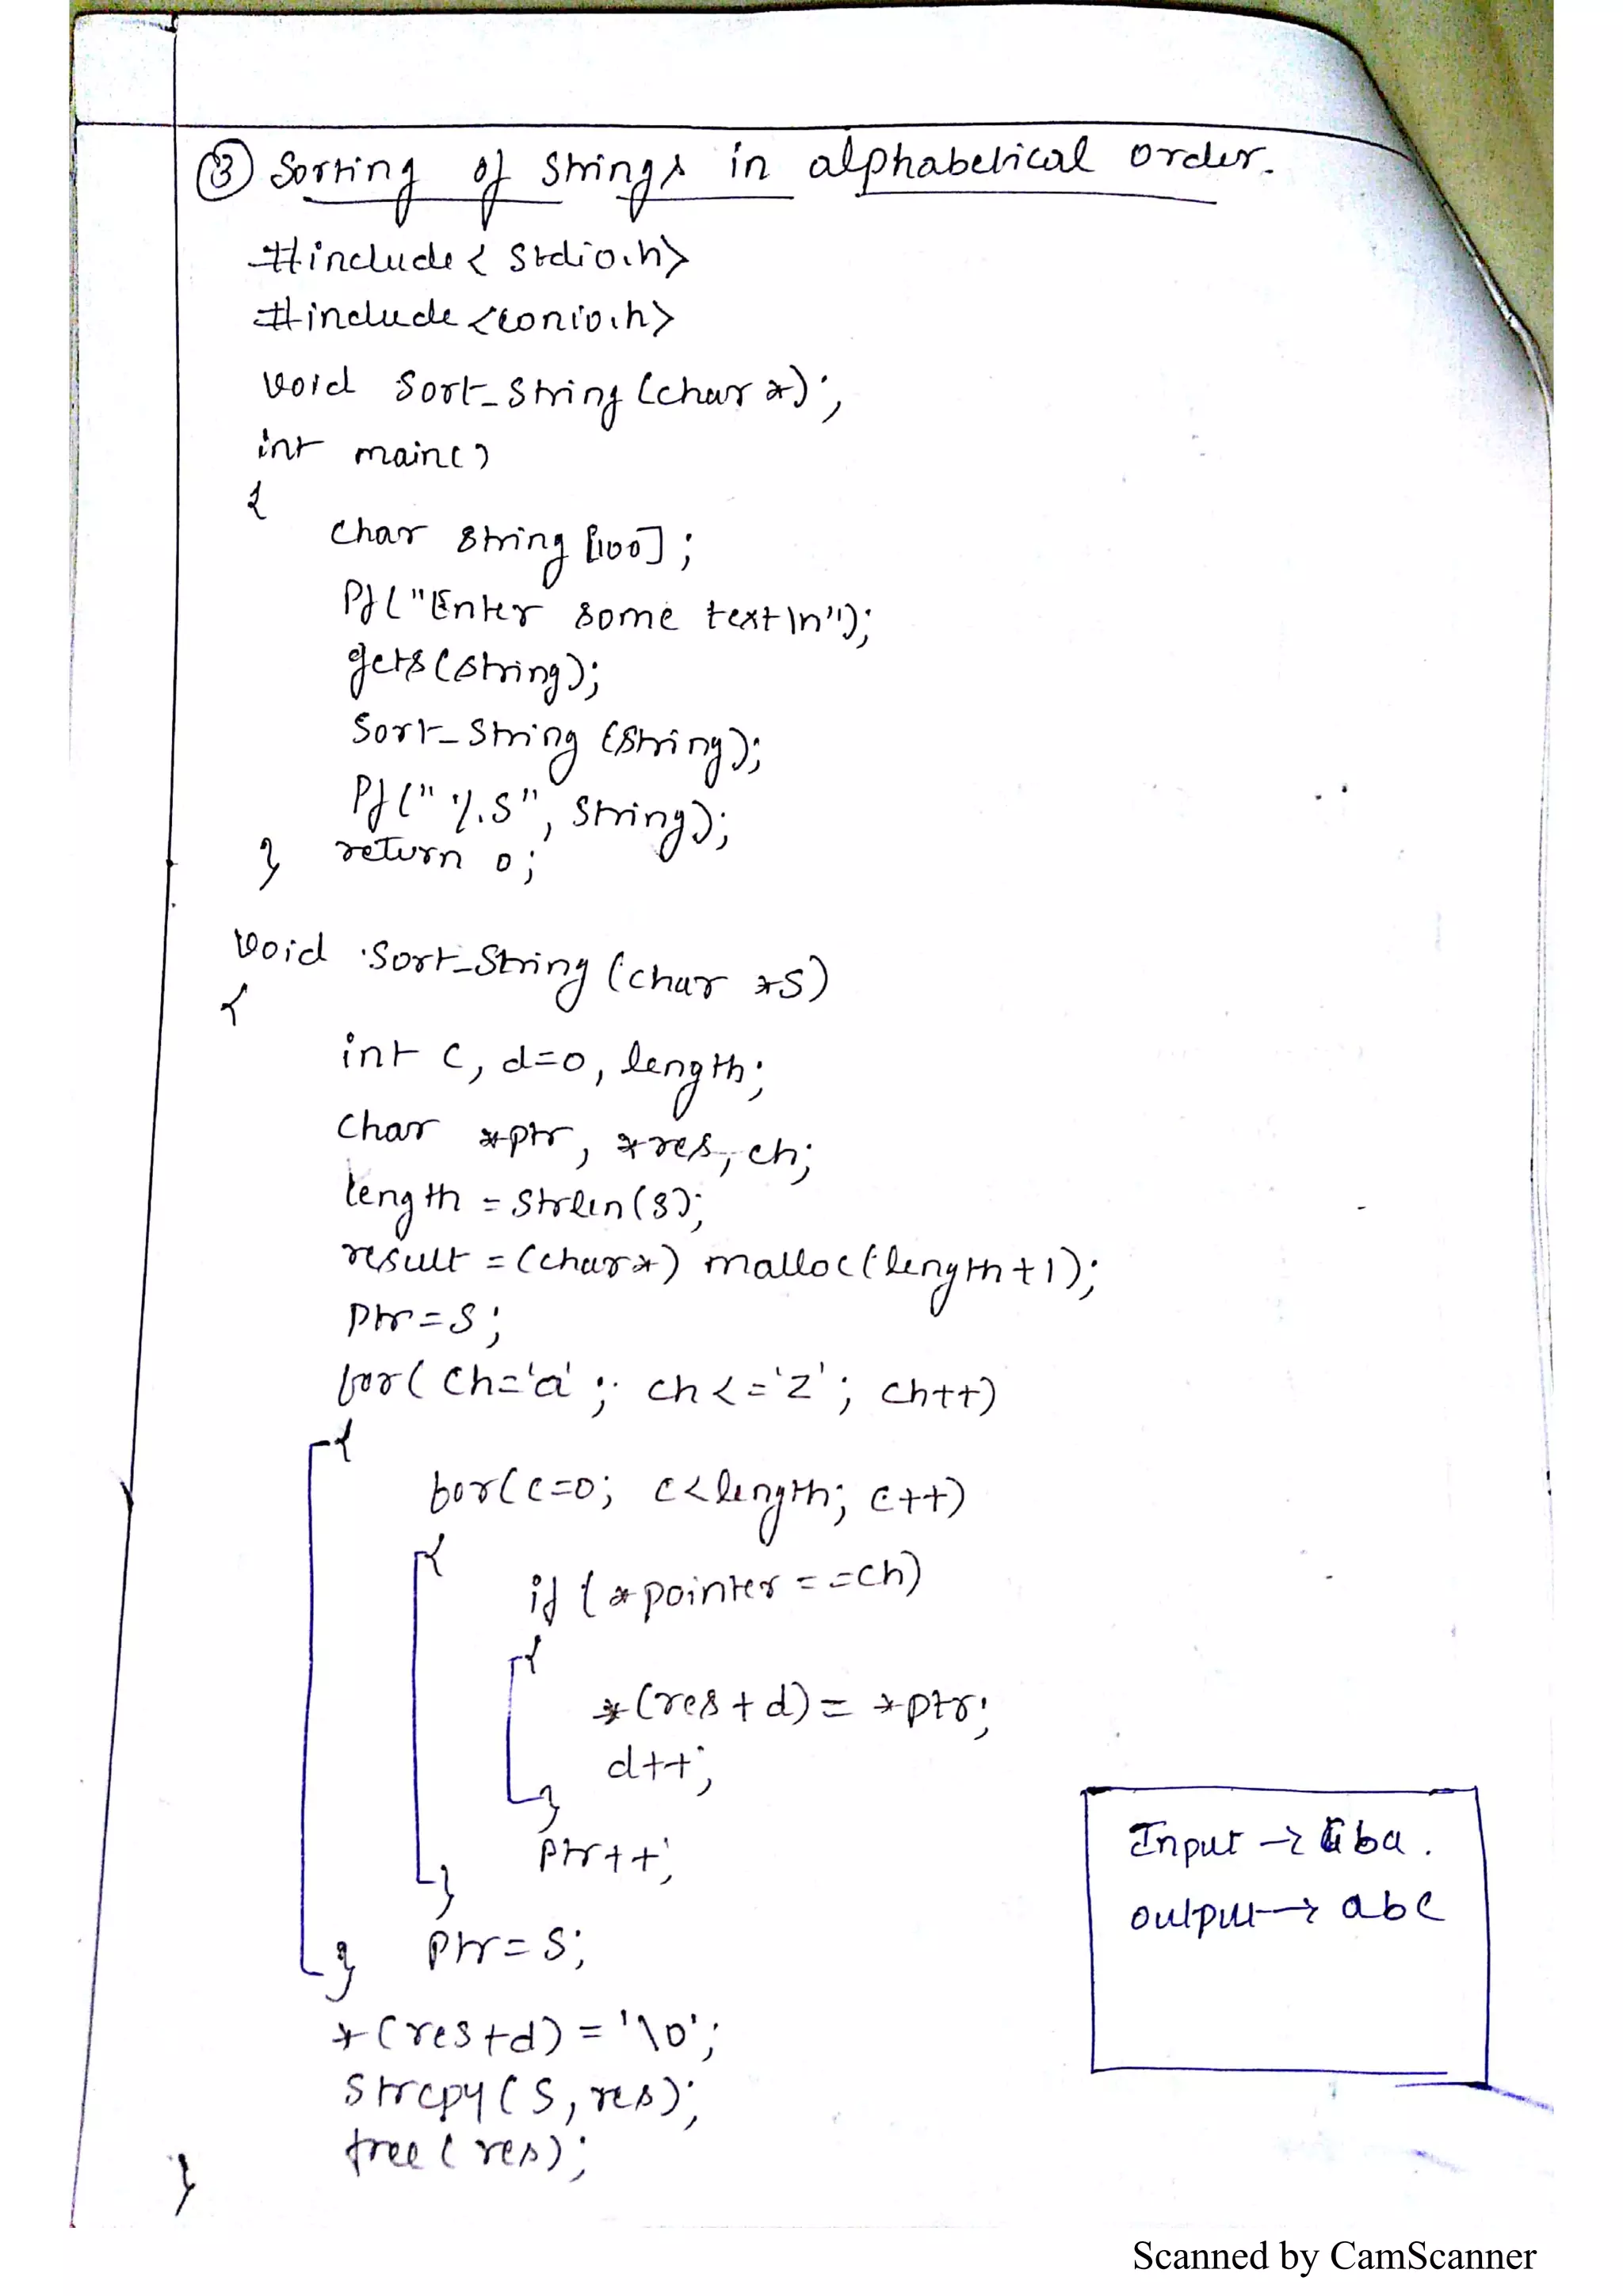 ③ Sorting of Strings in alphabetical order.
#include < stdio.h>
#include <conio.h>
void Sort_String (char *);
int main()
{
char string [100];
Pf("Enter some text\n");
gets(string);
Sort_String (String);
Pf("%s", String);
} return 0;
void Sort_String (char *S)
{
int c, d=0, length;
char *ptr, *res, ch;
length = strlen(s);
result = (char*) malloc(length+1);
ptr=S;
for( ch='a'; ch<='z'; ch++)
{
for(c=0; c<length; c++)
{
if (*pointer ==ch)
{
*(res+d)= *ptr;
d++;
}
ptr++;
}
ptr=S;
}
*(res+d)='\0';
strcpy(S,res);
free(res);
}
Input → cba.
output → abc
Scanned by CamScanner